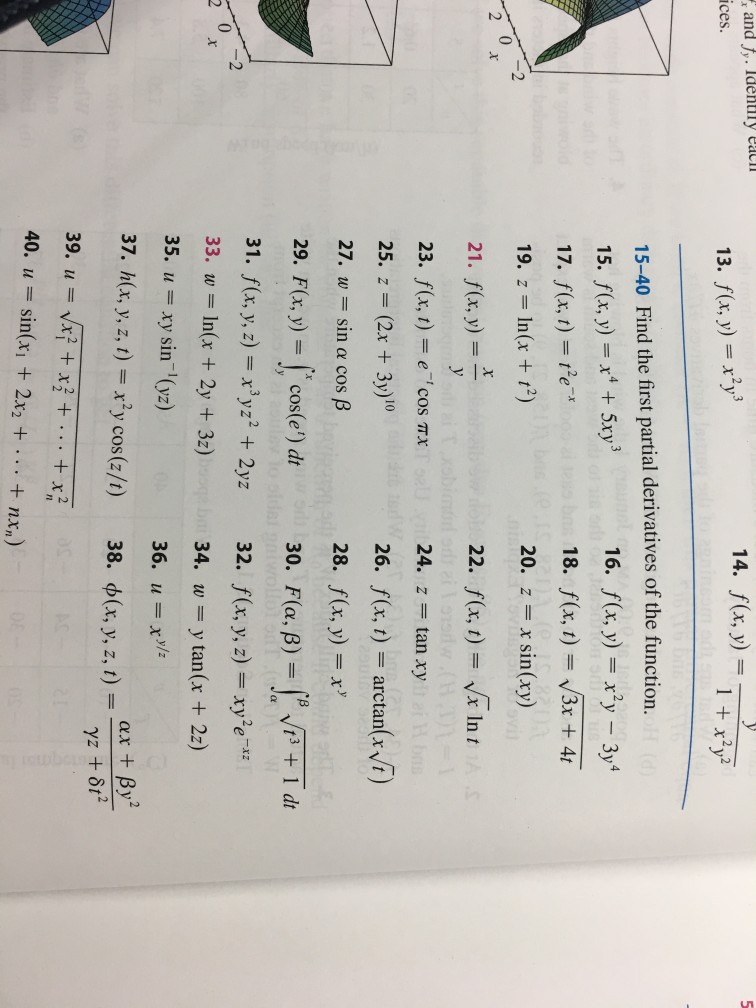 x and fy. Identify each
ices.
-2
0
2
x
-2
0
2
x
13. f(x, y) = x²y³
14. f(x, y) = y / (1 + x²y²)
15–40 Find the first partial derivatives of the function.
15. f(x, y) = x⁴ + 5xy³
16. f(x, y) = x²y − 3y⁴
17. f(x, t) = t²e⁻ˣ
18. f(x, t) = √(3x + 4t)
19. z = ln(x + t²)
20. z = x sin(xy)
21. f(x, y) = x/y
22. f(x, t) = √x ln t
23. f(x, t) = e⁻ᵗ cos πx
24. z = tan xy
25. z = (2x + 3y)¹⁰
26. f(x, t) = arctan(x√t)
27. w = sin α cos β
28. f(x, y) = xʸ
29. F(x, y) = ∫_y^x cos(eᵗ) dt
30. F(α, β) = ∫_α^β √(t³ + 1) dt
31. f(x, y, z) = x³yz² + 2yz
32. f(x, y, z) = xy²e^(−xz)
33. w = ln(x + 2y + 3z)
34. w = y tan(x + 2z)
35. u = xy sin⁻¹(yz)
36. u = x^(y/z)
37. h(x, y, z, t) = x²y cos(z/t)
38. φ(x, y, z, t) = (αx + βy²) / (γz + δt²)
39. u = √(x₁² + x₂² + ... + xₙ²)
40. u = sin(x₁ + 2x₂ + ... + nxₙ)
5